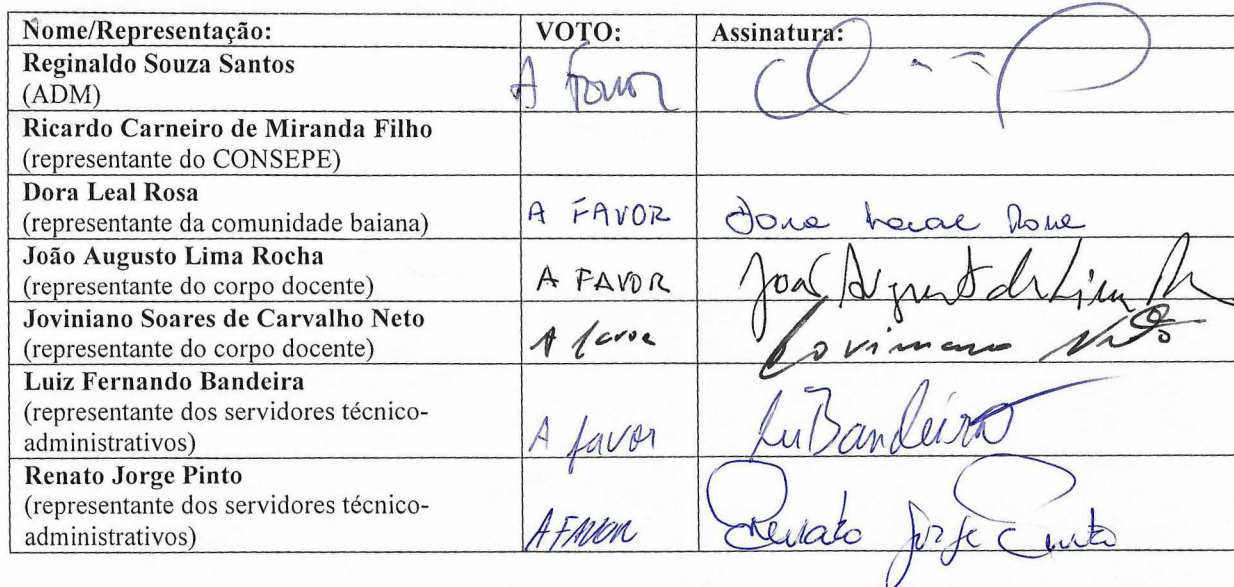 Nome/Representação: VOTO: Assinatura:
Reginaldo Souza Santos
(ADM) A Favor
Ricardo Carneiro de Miranda Filho
(representante do CONSEPE)
Dora Leal Rosa
(representante da comunidade baiana) A FAVOR Dora Leal Rosa
João Augusto Lima Rocha
(representante do corpo docente) A FAVOR João Augusto de Lima
Joviniano Soares de Carvalho Neto
(representante do corpo docente) A favor Joviniano Neto
Luiz Fernando Bandeira
(representante dos servidores técnico-
administrativos) A favor LuBandeira
Renato Jorge Pinto
(representante dos servidores técnico-
administrativos) A FAVOR Renato Jorge Pinto